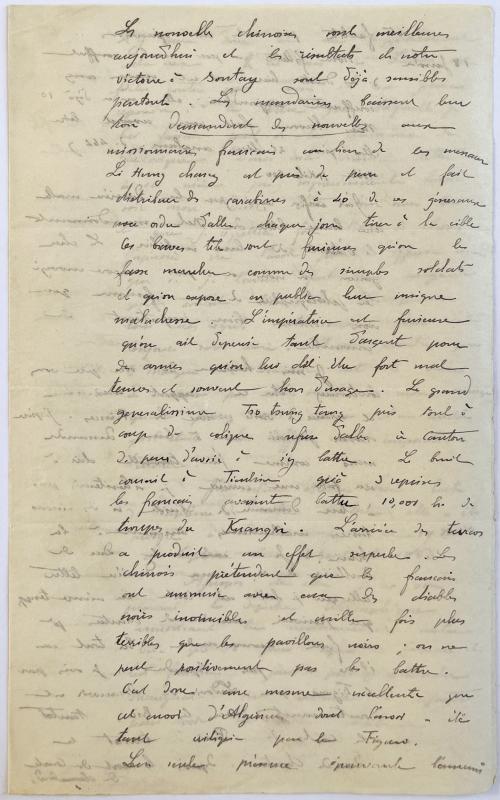 Les nouvelles chinoises sont meilleures
aujourd'hui et les résultats de notre
victoire à Sontay sont déjà sensibles
partout. Les mandarins baissent leur
ton demandent des nouvelles aux
missionnaires français au lieu de les menacer
Li Hung chang est pris de peur et fait
distribuer des carabines à 40 de ses généraux
avec ordre d'aller chaque jour tirer à la cible
les braves tit sont furieux qu'on les
fasse marcher comme des simples soldats
et qu'on expose en public leur insigne
maladresse. L'impératrice est furieuse
qu'on ait dépensé tant d'argent pour
de armes qu'on lui dit être fort mal
tenues et souvent hors d'usage. Le grand
generalissime Tso tsung tang pris tout à
coup de colique refuse d'aller à Canton
de peur d'avoir à s'y battre. Le bruit
courait à Tientsin qu'à 3 reprises
les français avaient battu 10,000 h. de
troupes du Kuangsi. L'arrivée des turcos
a produit un effet superbe. Les
chinois prétendent que les français
ont amené avec eux des diables
noirs invincibles et mille fois plus
terribles que les pavillons noirs ; on ne
peut positivement pas les battre.
C'est donc une mesure excellente que
cet envoi d'Algériens dont l'envoi a été
tant critiqué par le Figaro.
Leur seule présence épouvante l'ennemi